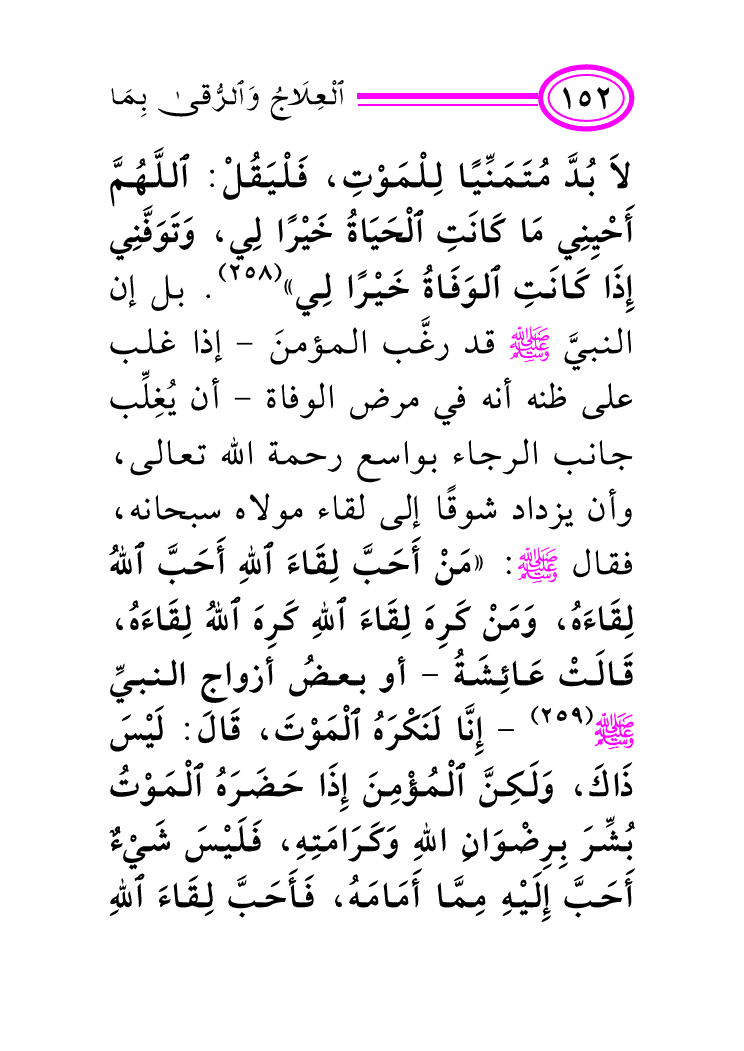 ١٥٢ ٱلْعِلَاجُ وَٱلرُّقىٰ بِمَا
لاَ بُدَّ مُتَمَنِّيًا لِلْمَوْتِ، فَلْيَقُلْ: ٱللَّهُمَّ
أَحْيِنِي مَا كَانَتِ ٱلْحَيَاةُ خَيْرًا لِي، وَتَوَفَّنِي
إِذَا كَانَتِ ٱلوَفَاةُ خَيْرًا لِي»(٢٥٨). بل إن
النبيَّ ﷺ قد رغَّب المؤمنَ – إذا غلب
على ظنه أنه في مرض الوفاة – أن يُغِلِّب
جانب الرجاء بواسع رحمة الله تعالى،
وأن يزداد شوقًا إلى لقاء مولاه سبحانه،
فقال ﷺ: «مَنْ أَحَبَّ لِقَاءَ ٱللهِ أَحَبَّ ٱللهُ
لِقَاءَهُ، وَمَنْ كَرِهَ لِقَاءَ ٱللهِ كَرِهَ ٱللهُ لِقَاءَهُ،
قَالَتْ عَائِشَةُ – أو بعضُ أزواجِ النبيِّ
ﷺ(٢٥٩) – إِنَّا لَنَكْرَهُ ٱلْمَوْتَ، قَالَ: لَيْسَ
ذَاكَ، وَلَكِنَّ ٱلْمُؤْمِنَ إِذَا حَضَرَهُ ٱلْمَوْتُ
بُشِّرَ بِرِضْوَانِ اللهِ وَكَرَامَتِهِ، فَلَيْسَ شَيْءٌ
أَحَبَّ إِلَيْهِ مِمَّا أَمَامَهُ، فَأَحَبَّ لِقَاءَ ٱللهِ